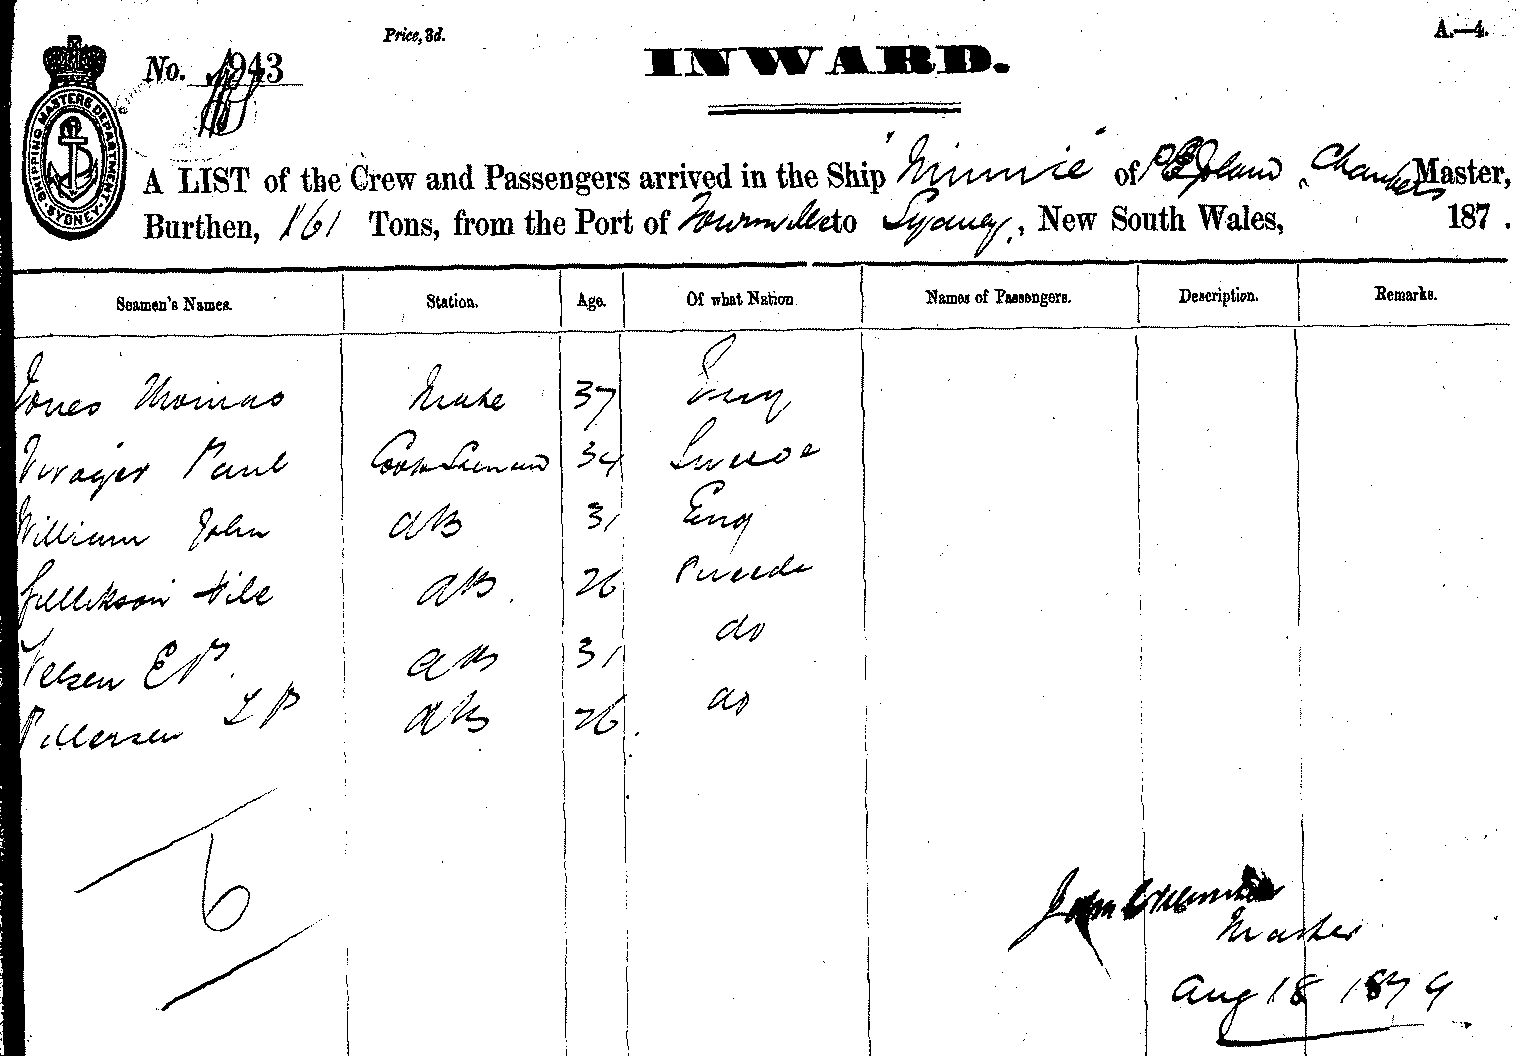 Price, 3d.
A.—4.
No. 1943
INWARD.
SHIPPING MASTERS DEPARTMENT. SYDNEY.
A LIST of the Crew and Passengers arrived in the Ship "Minnie" of Chambers Master,
Burthen, 161 Tons, from the Port of to Sydney, New South Wales, 187 .
Seamen's Names. Station. Age. Of what Nation Names of Passengers. Description. Remarks.
Jones Thomas Mate 37 Eng
Paul Cook Seaman 34 Swede
William John AB 31 Eng
AB 26 Swede
Nelsen E P. AB 31 do
Pettersen L P AB 26 do
6
John
Master
Aug 18 1879